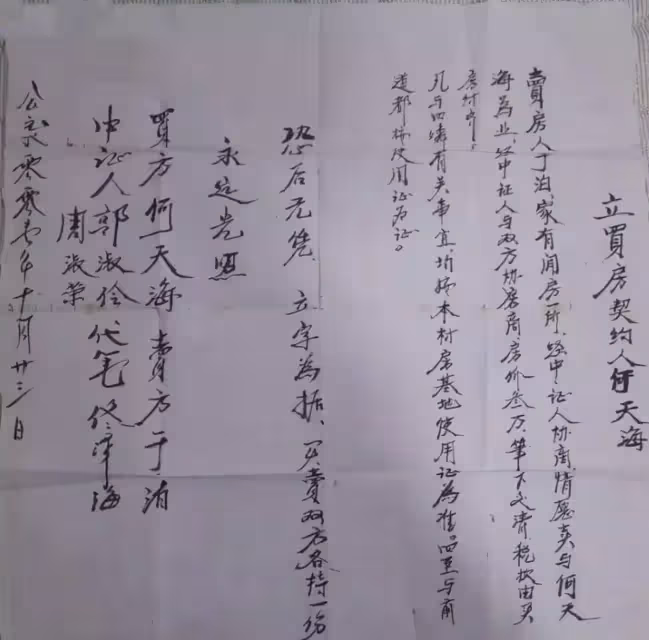 立買房契约人何天海
賣房人于泊家有闲房一所，经中证人协商，情愿卖与何天
海為业，经中证人与双方协商，房价叁万，笔下交清，税款由买
房付
凡与四邻有关事宜，均按本村房基地使用证為准，四至与前
道都按使用证为证。
恐后无凭 立字為据，买賣双方各持一份
永远光照
買方何天海 賣方于泊
中证人郭淑伶 代笔佟泽海
周淑荣
公元零零七年十月廿三日